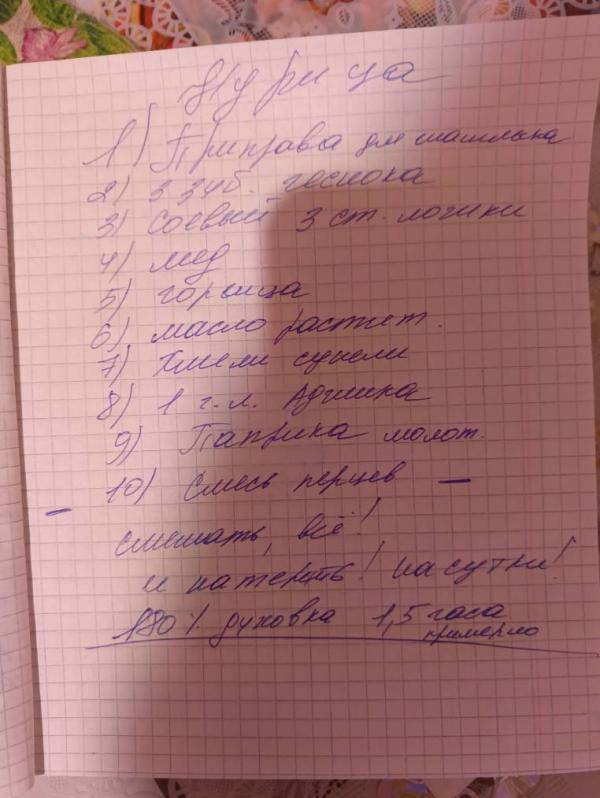 Курица
1) Приправа для шашлыка
2) 3 зуб. чеснока
3) Соевый 3 ст. ложки
4) мед
5) горчица
6) масло растит.
7) Хмели сунели
8) 1 ч.л. Аджика
9) Паприка молот.
10) Смесь перцев —
– смешать, всё!
и натереть! на сутки!
180% духовка 1,5 часа
примерно